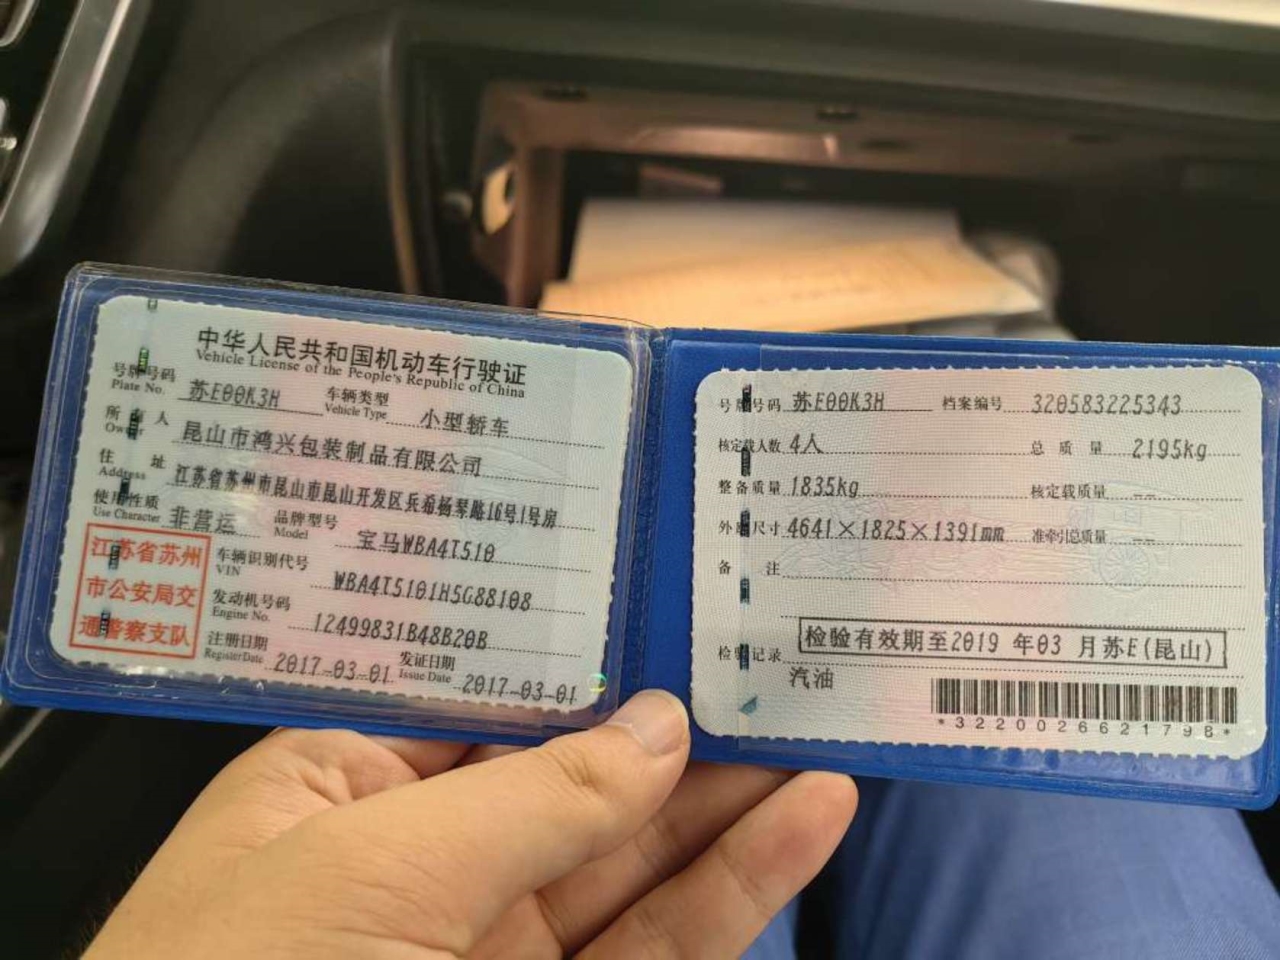 中华人民共和国机动车行驶证
Vehicle License of the People's Republic of China
号牌号码 苏E00K3H 车辆类型 小型轿车
Plate No. Vehicle Type
所有人 昆山市鸿兴包装制品有限公司
Owner
住址 江苏省苏州市昆山市昆山开发区兵希杨琴路16号1号房
Address
使用性质 非营运 品牌型号 宝马WBA4T510
Use Character Model
江苏省苏州
市公安局交
通警察支队
车辆识别代号 WBA4T5101H5G88108
VIN
发动机号码 12499831B48B20B
Engine No.
注册日期 2017-03-01 发证日期 2017-03-01
Register Date Issue Date
号牌号码 苏E00K3H 档案编号 320583225343
核定载人数 4人 总质量 2195kg
整备质量 1835kg 核定载质量 --
外廓尺寸 4641×1825×1391mm 准牵引总质量 --
备注
检验记录 检验有效期至2019年03月苏E(昆山)
汽油
*3220026621798*